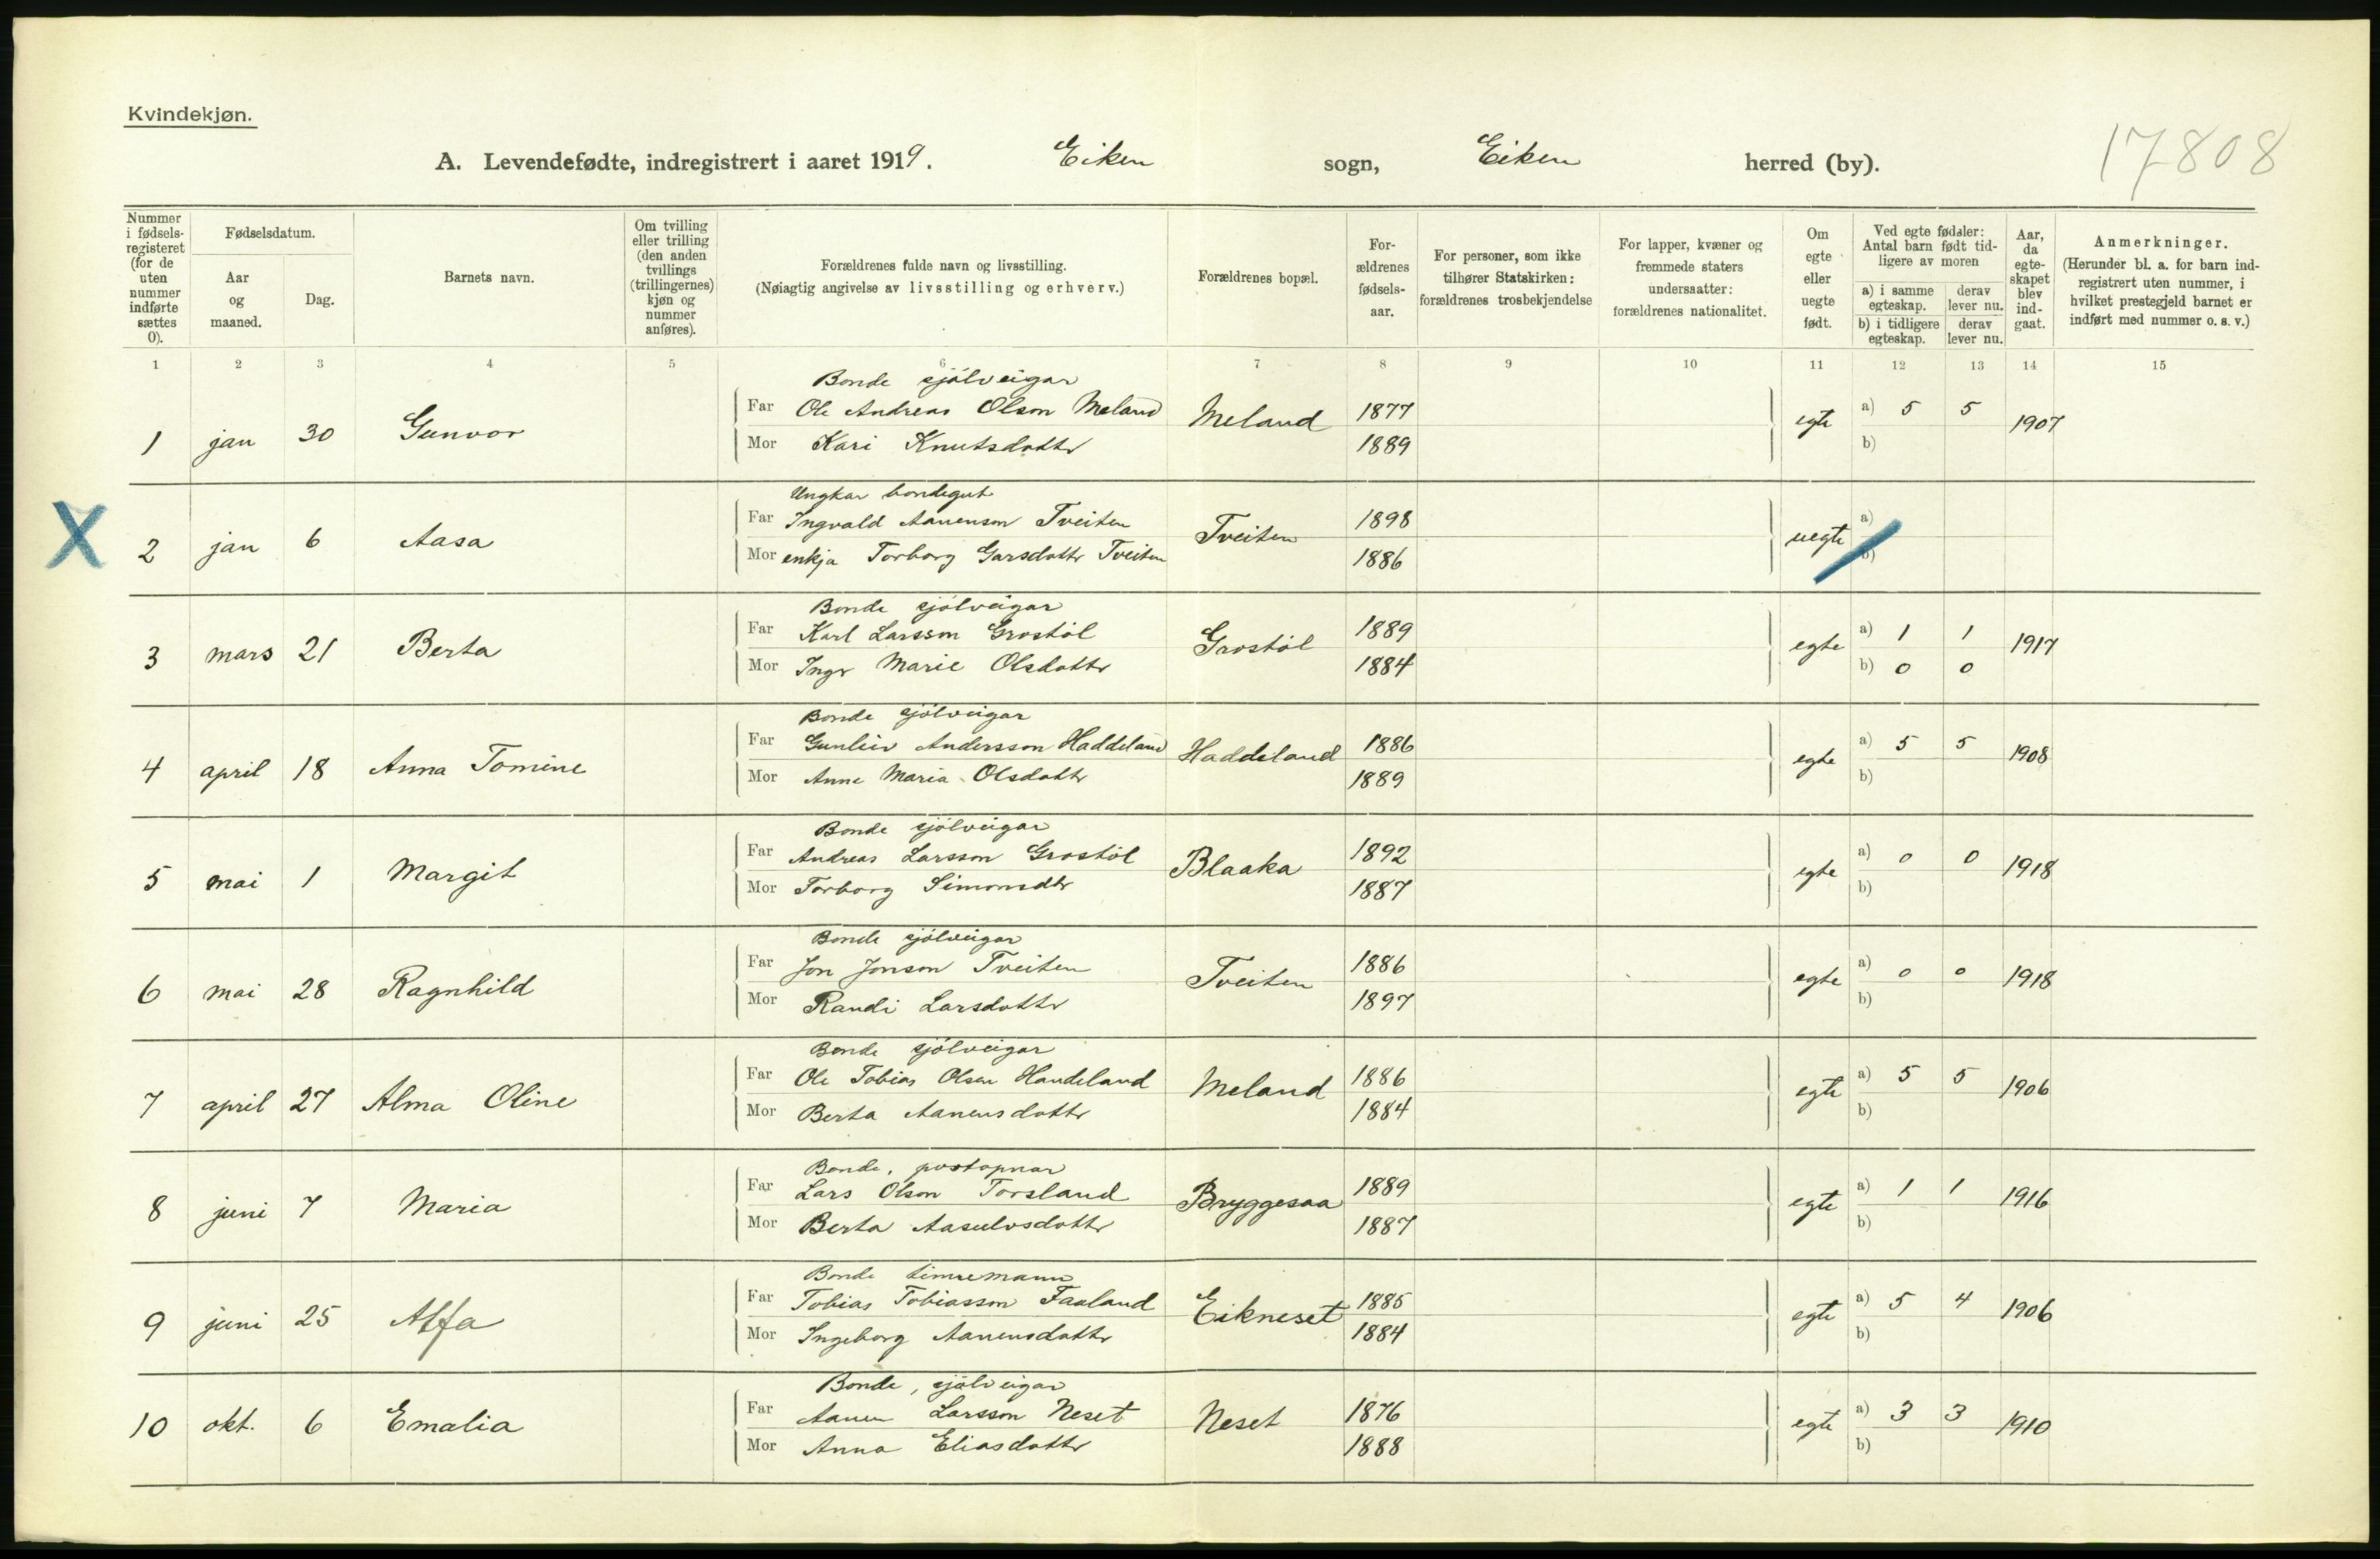 Kvindekjøn.
A. Levendefødte, indregistrert i aaret 1919. Eiken sogn, Eiken herred (by). 17808
Nummer i fødsels-registeret (for de uten nummer indførte sættes 0).
Fødselsdatum.
Aar og maaned.
Dag.
Barnets navn.
Om tvilling eller trilling (den anden tvillings (trillingernes) kjøn og nummer anføres).
Forældrenes fulde navn og livsstilling.
(Nøiagtig angivelse av livsstilling og erhverv.)
Forældrenes bopæl.
For-ældrenes fødsels-aar.
For personer, som ikke tilhører Statskirken: forældrenes trosbekjendelse
For lapper, kvæner og fremmede staters undersaatter: forældrenes nationalitet.
Om egte eller uegte født.
Ved egte fødsler: Antal barn født tid-ligere av moren
a) i samme egteskap. derav lever nu.
b) i tidligere egteskap. derav lever nu.
Aar, da egte-skapet blev ind-gaat.
Anmerkninger.
(Herunder bl. a. for barn ind-registrert uten nummer, i hvilket prestegjeld barnet er indført med nummer o. s. v.)
1 2 3 4 5 6 7 8 9 10 11 12 13 14 15
Bonde sjölveigar
Far Ole Andreas Olson Meland 1877 a) 5 5
1 jan 30 Gunvor Meland egte 1907
Mor Kari Knutsdottr 1889 b)
Ungkar bondegut
Far Ingvald Aanenson Tveiten 1898 a)
X 2 jan 6 Aasa Tveiten uegte
Mor enkja Torborg Garsdottr Tveiten 1886 b)
Bonde sjölveigar
Far Karl Larsson Grostöl 1889 a) 1 1
3 mars 21 Berta Grostöl egte 1917
Mor Ingr Marie Olsdottr 1884 b) 0 0
Bonde sjölveigar
Far Gunleiv Andersson Haddeland 1886 a) 5 5
4 april 18 Anna Tomine Haddeland egte 1908
Mor Anne Maria Olsdottr 1889 b)
Bonde sjölveigar
Far Andreas Larsson Grostöl 1892 a) 0 0
5 mai 1 Margit Blaaka egte 1918
Mor Torborg Simonsdtr 1887 b)
Bonde sjölveigar
Far Jon Jonson Tveiten 1886 a) 0 0
6 mai 28 Ragnhild Tveiten egte 1918
Mor Randi Larsdottr 1897 b)
Bonde sjölveigar
Far Ole Tobias Olsen Handeland 1886 a) 5 5
7 april 27 Alma Oline Meland egte 1906
Mor Berta Aanensdottr 1884 b)
Bonde, postopnar
Far Lars Olson Torsland 1889 a) 1 1
8 juni 7 Maria Bryggesaa egte 1916
Mor Berta Aasulvsdottr 1887 b)
Bonde timremann
Far Tobias Tobiasson Faaland 1885 a) 5 4
9 juni 25 Alfa Eikneset egte 1906
Mor Ingeborg Aanensdottr 1884 b)
Bonde, sjölveigar
Far Aanen Larsson Neset 1876 a) 3 3
10 okt. 6 Emalia Neset egte 1910
Mor Anna Eliasdottr 1888 b)